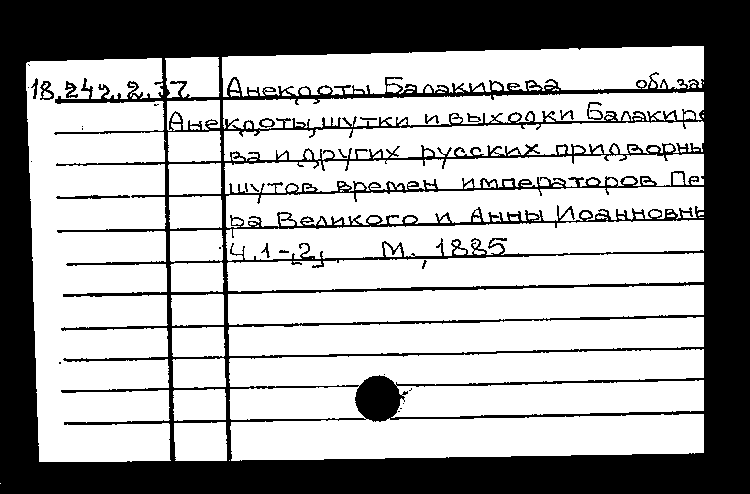 18.242.2.37 Анекдоты Балакирева обл.за
Анекдоты, шутки и выходки Балакире
ва и других русских придворны
шутов времен императоров Пе
ра Великого и Анны Иоанновны
Ч.1-[2]. М., 1885